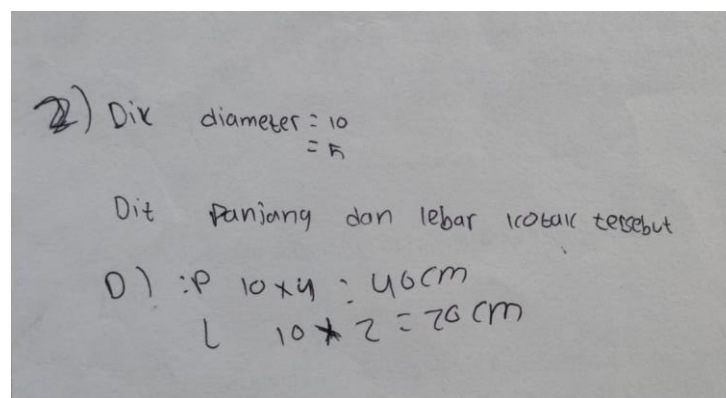 2) Dik diameter = 10
= 5
Dit Panjang dan lebar kotak tersebut
D) : P 10 x 4 = 40 cm
L 10 x 2 = 20 cm